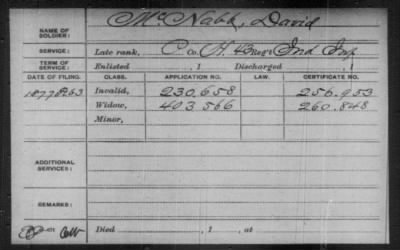 McNabb, David
NAME OF SOLDIER:
SERVICE: Late rank, Co. H, 43 Reg't Ind Inf
TERM OF SERVICE: Enlisted , 1 Discharged , 1
DATE OF FILING. CLASS. APPLICATION NO. LAW. CERTIFICATE NO.
1877 Invalid, 230.658 256.953
Widow, 403.566 260.848
Minor,
ADDITIONAL SERVICES:
REMARKS:
Died , 1 , at